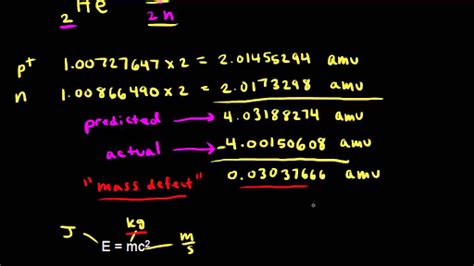 ₂He
2n
p⁺ 1.00727647 × 2 = 2.01455294 amu
n 1.00866490 × 2 = 2.0173298 amu
predicted → 4.03188274 amu
actual → -4.00150608 amu
"mass defect" 0.03037666 amu
kg
J E = mc² m/s